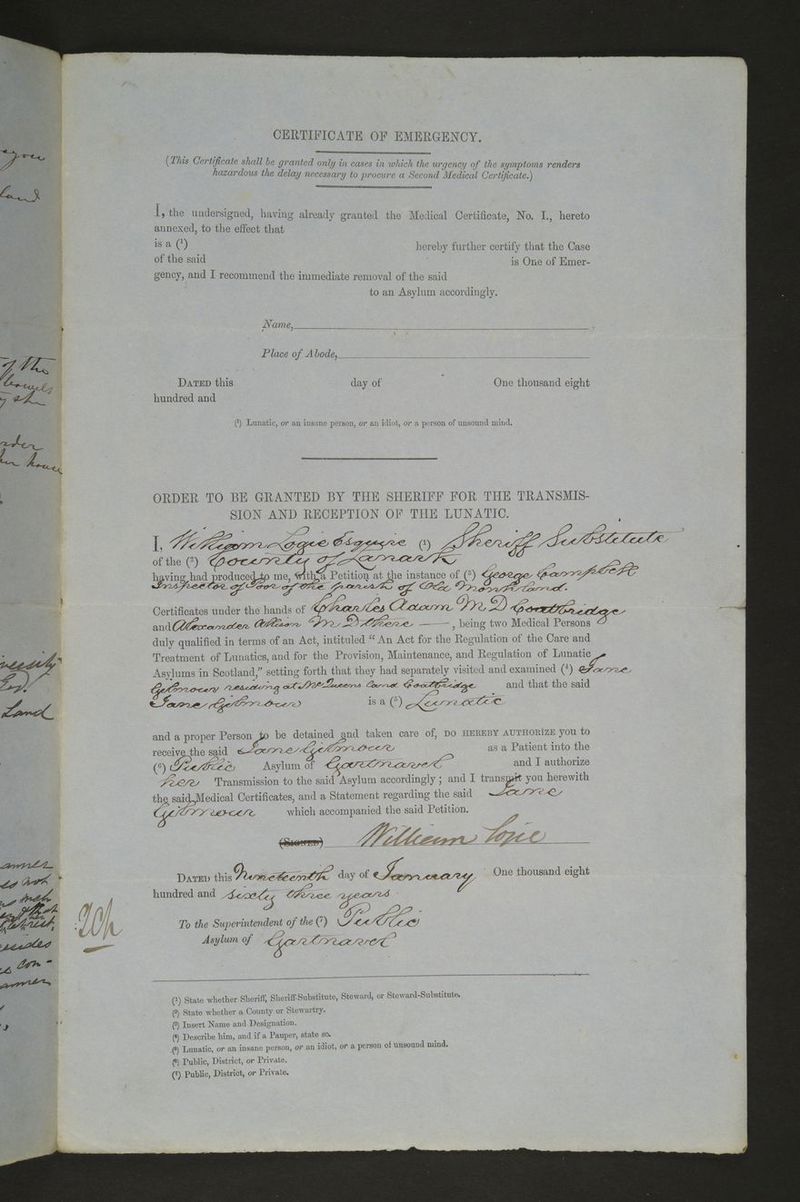 CERTIFICATE OF EMERGENCY.
(This Certificate shall be granted only in cases in which the urgency of the symptoms renders
hazardous the delay necessary to procure a Second Medical Certificate.)
I, the undersigned, having already granted the Medical Certificate, No. I., hereto
annexed, to the effect that
is a (¹) hereby further certify that the Case
of the said is One of Emer-
gency, and I recommend the immediate removal of the said
to an Asylum accordingly.
Name,
Place of Abode,
DATED this day of One thousand eight
hundred and
(¹) Lunatic, or an insane person, or an idiot, or a person of unsound mind.
ORDER TO BE GRANTED BY THE SHERIFF FOR THE TRANSMIS-
SION AND RECEPTION OF THE LUNATIC.
I, William Logie Esquire (¹) Sheriff Substitute
of the (²) County of Lanark
having had produced to me, with a Petition at the instance of (³) George Campbell
Inspector of Poor of the Parish of Old Monkland.
Certificates under the hands of Charles Adam M.D Coatbridge
and Alexander M.D there, being two Medical Persons
duly qualified in terms of an Act, intituled “An Act for the Regulation of the Care and
Treatment of Lunatics, and for the Provision, Maintenance, and Regulation of Lunatic
Asylums in Scotland,” setting forth that they had separately visited and examined (⁴) Jane
Gilmour residing at Coatbridge and that the said
Jane Gilmour is a (⁵) Lunatic
and a proper Person to be detained and taken care of, DO HEREBY AUTHORIZE you to
receive the said Jane Gilmour as a Patient into the
(⁶) Public Asylum of Gartnavel and I authorize
her Transmission to the said Asylum accordingly ; and I transmit you herewith
the said Medical Certificates, and a Statement regarding the said Jane
Gilmour which accompanied the said Petition.
(SIGNED) William Logie
DATED this Nineteenth day of January One thousand eight
hundred and Sixty three years
To the Superintendent of the (⁷) Public
Asylum of Gartnavel
(¹) State whether Sheriff, Sheriff-Substitute, Steward, or Steward-Substitute.
(²) State whether a County or Stewartry.
(³) Insert Name and Designation.
(⁴) Describe him, and if a Pauper, state so.
(⁵) Lunatic, or an insane person, or an idiot, or a person of unsound mind.
(⁶) Public, District, or Private.
(⁷) Public, District, or Private.